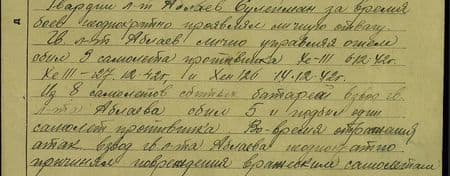 Гвардии л-т Аблаев Сулейман за время
боев неоднократно проявлял личную отвагу.
Гв. л-т Аблаев лично управляя огнем
сбил 3 самолета противника Хе-III 6.12.42г.
Хе III - 27.12.42г. и Хен 126 14.12.42г.
Из 8 самолетов сбитых батареей взвод гв.
л-та Аблаева сбил 5 и подбил один
самолет противника Во-время отражения
атак взвод гв. л-та Аблаева неоднократно
причинял повреждения вражеским самолетам